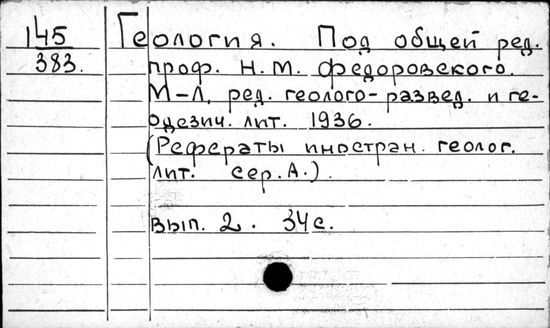 145
383.
Геология. Под общей ред.
проф. Н.М. Федоровского.
М-Л, ред. геолого-развед. и ге-
одезич. лит. 1936.
(Рефераты иностран. геолог.
лит. сер. А.).
вып. 2. 34 с.